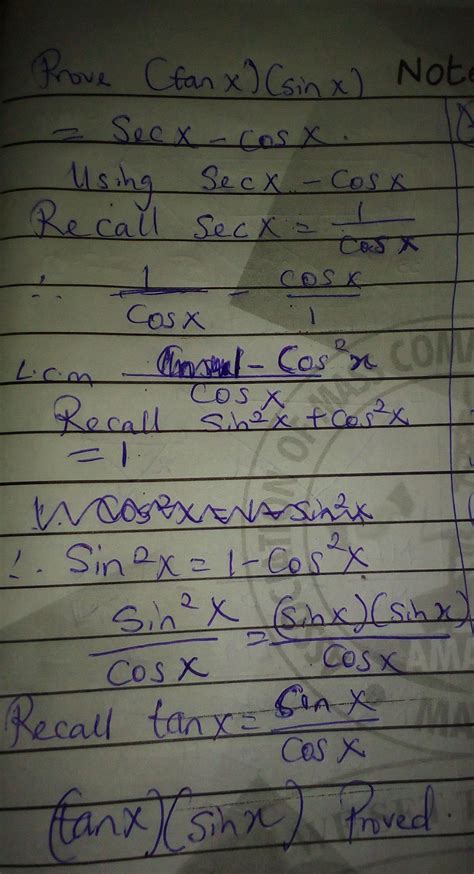 Prove (tan x)(sin x) Note
= Sec x - cos x.
Using Sec x - Cos x
Recall sec x = 1
cos x
∴ 1 - cos x
Cos x 1
L.c.m 1 - Cos²x
Cos x
Recall Sin²x + Cos²x
= 1
∴ Sin²x = 1 - Cos²x
Sin²x = (sin x)(sin x)
Cos x Cos x
Recall tan x = Sin x
Cos x
(tan x)(sin x) Proved.